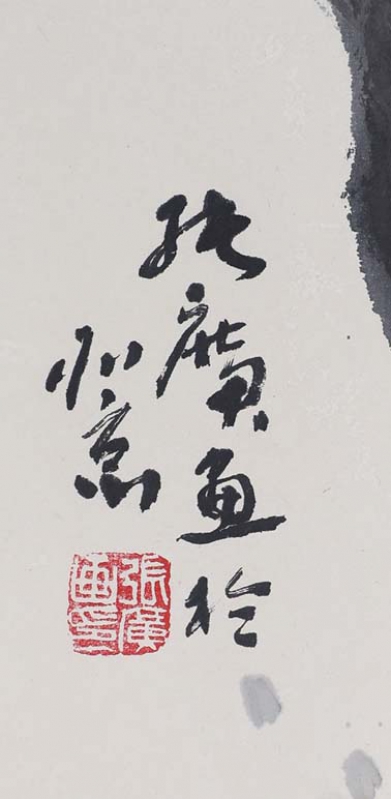 張廣畫於
北京
張廣畫印